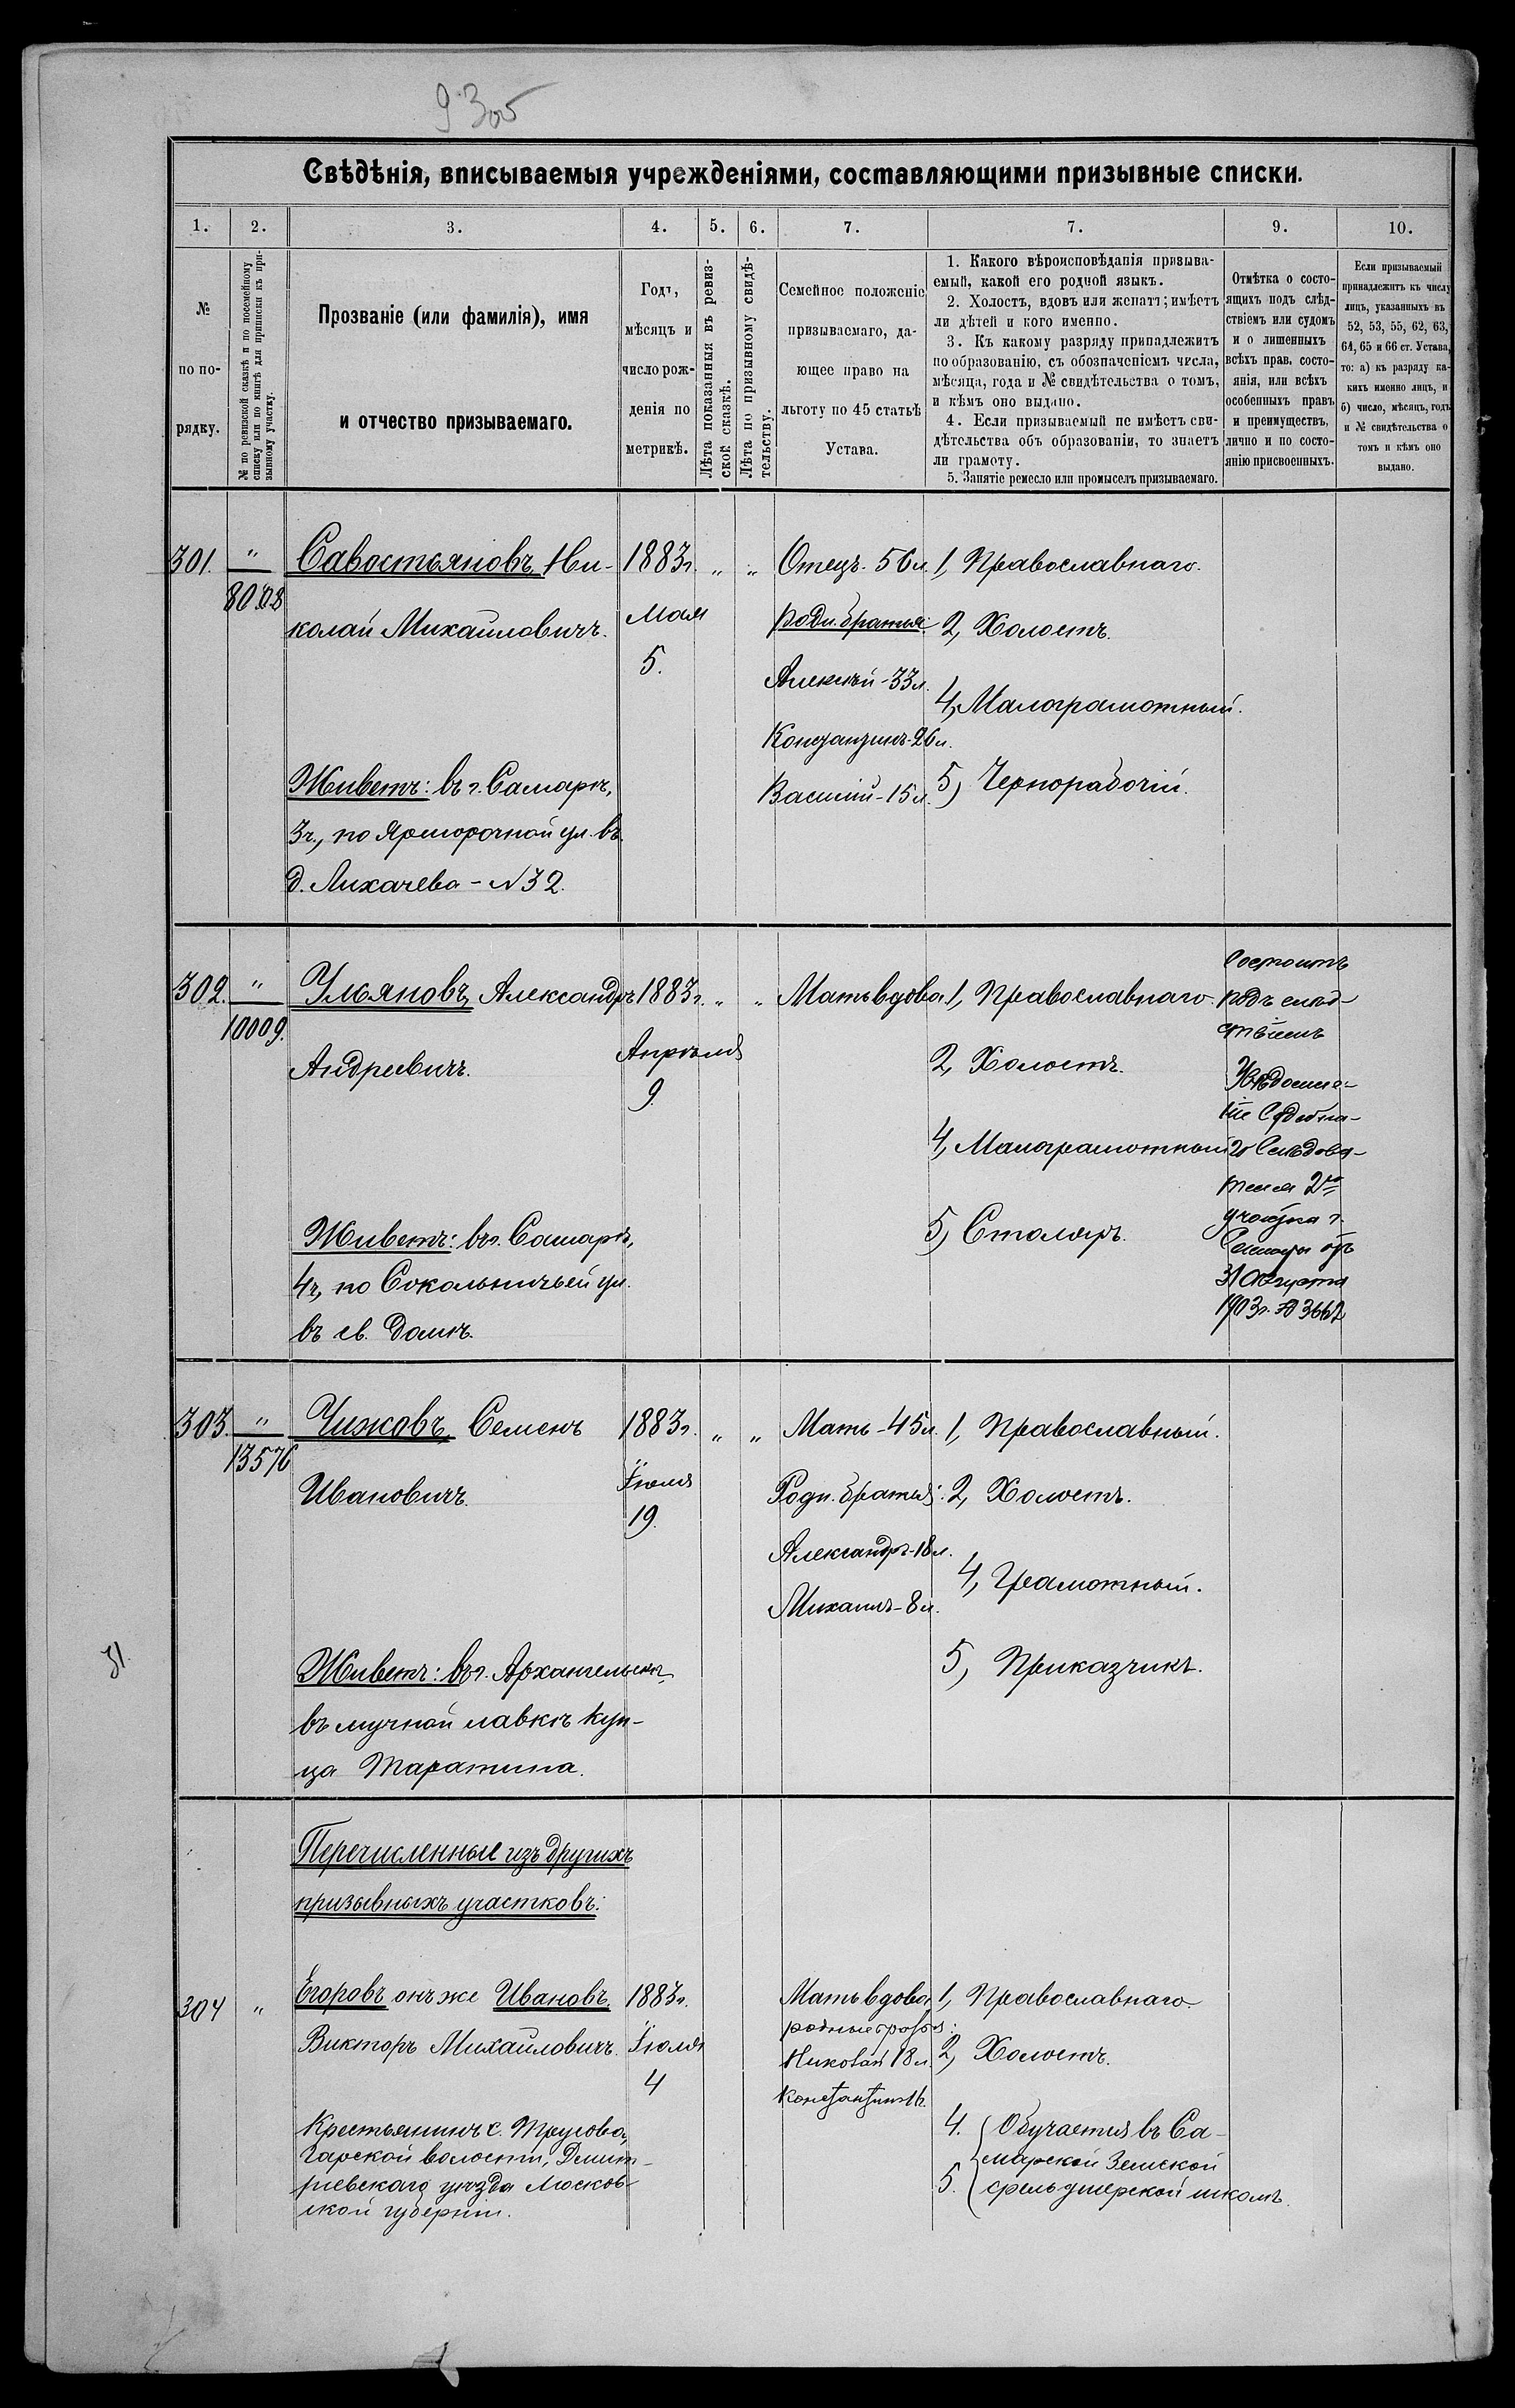 9 305
Свѣдѣнія, вписываемыя учрежденіями, составляющими призывные списки.
1. 2. 3. 4. 5. 6. 7. 7. 9. 10.
№
по по-
рядку.
№ по ревизской сказкѣ и по посемейному
списку или по книгѣ для приписки къ при-
зывному участку.
Прозваніе (или фамилія), имя
и отчество призываемаго.
Годъ,
мѣсяцъ и
число рож-
денія по
метрикѣ.
Лѣта показанныя въ ревиз-
ской сказкѣ.
Лѣта по призывному свидѣ-
тельству.
Семейное положеніе
призываемаго, да-
ющее право на
льготу по 45 статьѣ
Устава.
1. Какого вѣроисповѣданія призыва-
емый, какой его родной языкъ.
2. Холостъ, вдовъ или женатъ; имѣетъ
ли дѣтей и кого именно.
3. Къ какому разряду принадлежитъ
по образованію, съ обозначеніемъ числа,
мѣсяца, года и № свидѣтельства о томъ,
и кѣмъ оно выдано.
4. Если призываемый не имѣетъ сви-
дѣтельства объ образованіи, то знаетъ
ли грамоту.
5. Занятіе ремесло или промыселъ призываемаго.
Отмѣтка о состо-
ящихъ подъ слѣд-
ствіемъ или судомъ
и о лишенныхъ
всѣхъ прав. состо-
янія, или всѣхъ
особенныхъ правъ
и преимуществъ,
лично и по состо-
янію присвоенныхъ.
Если призываемый
принадлежитъ къ числу
лицъ, указанныхъ въ
52, 53, 55, 62, 63,
64, 65 и 66 ст. Устава,
то: а) къ разряду ка-
кихъ именно лицъ, и
б) число, мѣсяцъ, годъ
и № свидѣтельства о
томъ и кѣмъ оно
выдано.
301. "
Савостьяновъ, Ни-
колай Михаиловичъ.
Живетъ: въ г. Самарѣ,
3ч., по Ярморочной ул. въ
д. Лихачева - № 32.
1883г.
Мая
5.
" "
Отецъ. 56 л.
родн. братья:
Алексѣй - 33 л.
Константинъ - 26 л.
Василій - 15 л.
1, Православнаго.
2, Холостъ.
4, Малограмотный.
5) Чернорабочій.
302. "
10009.
Ульяновъ, Александръ
Андреевичъ.
Живетъ: въ г. Самарѣ,
4ч, по Сокольничьей ул.
въ св. домѣ.
1883г.
Апрѣля
9.
" "
Мать вдова
1, Православнаго.
2, Холостъ.
4, Малограмотный
5) Столяръ.
Состоитъ
подъ слѣд-
ствіемъ
Увѣдомле-
ніе Судебна-
го Слѣдова-
теля 2го
участка г.
Самары отъ
31 Августа
1903г. № 3662
303. "
13576
Чижовъ, Семенъ
Ивановичъ.
Живетъ: въ г. Архангельскѣ,
въ мучной лавкѣ куп-
ца Таратина.
1883г.
Іюля
19.
" "
Мать - 45 л.
Родн. братья:
Александръ - 18 л.
Михаилъ - 8 л.
1, Православный.
2, Холостъ.
4, Грамотный.
5, Приказчикъ.
31.
Перечисленные изъ другихъ
призывныхъ участковъ:
304 "
Егоровъ онъ же Ивановъ,
Викторъ Михаиловичъ.
Крестьянинъ с. Трусова,
Гарской волости, Дмит-
ріевскаго уѣзда Москов-
ской губерніи.
1883г.
Іюля
4
Мать вдова,
родные братья:
Николай 18 л.
Константинъ 16.
1, Православнаго.
2, Холостъ.
4. Обучается въ Са-
марской Земской
5. фельдшерской школѣ.